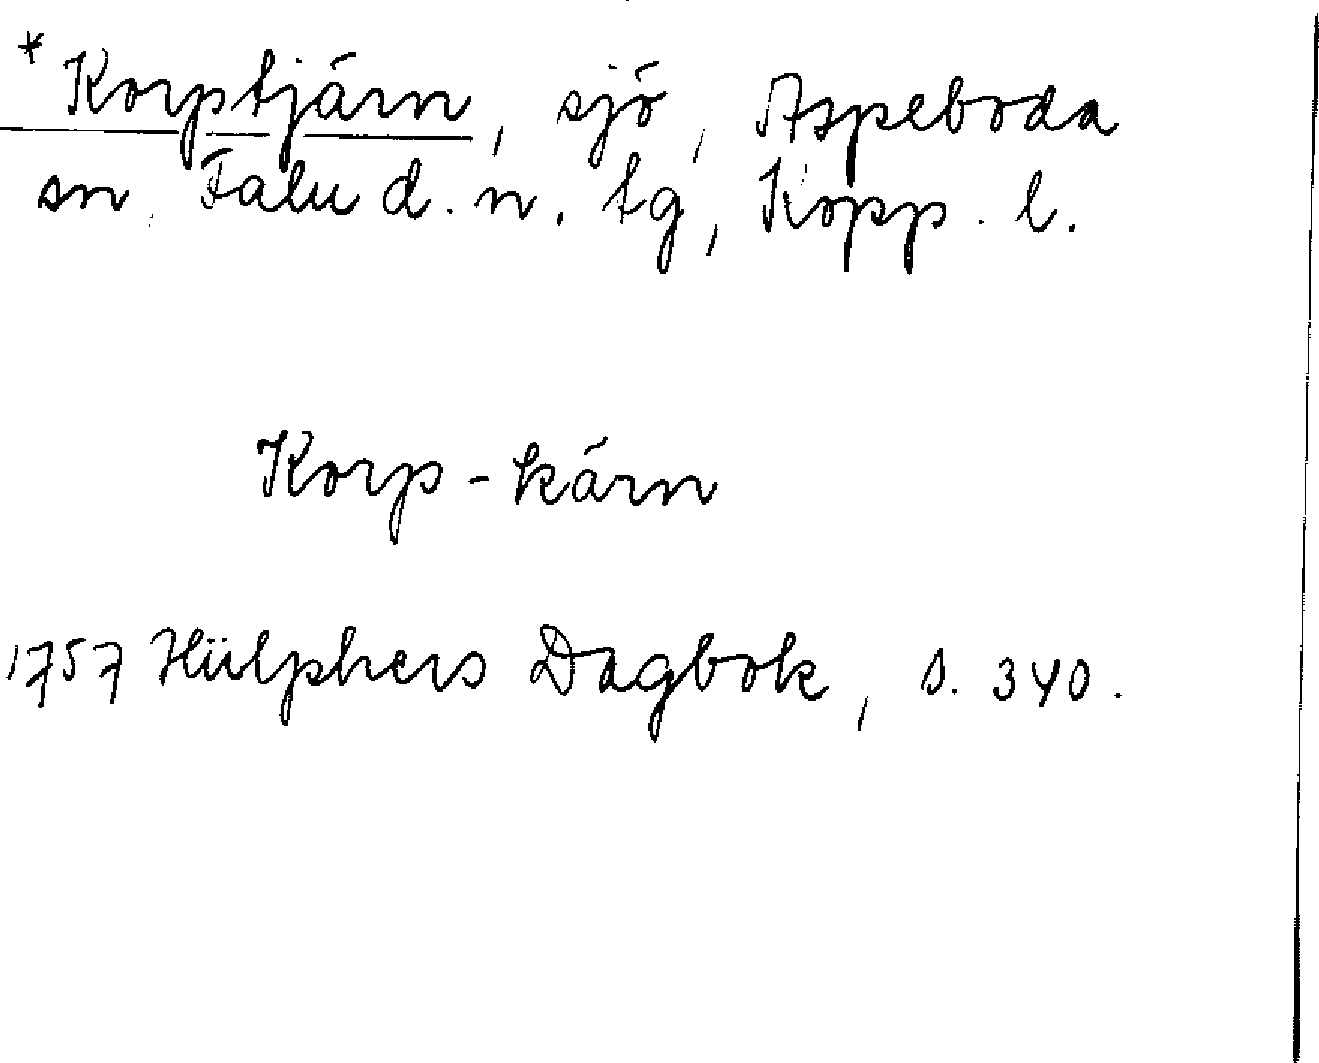 * Korptjärn, sjö, Aspeboda
sn. Falu d. n. tg, Kopp. l.
Korp-kärn
1757 Hülphers Dagbok, s. 340.